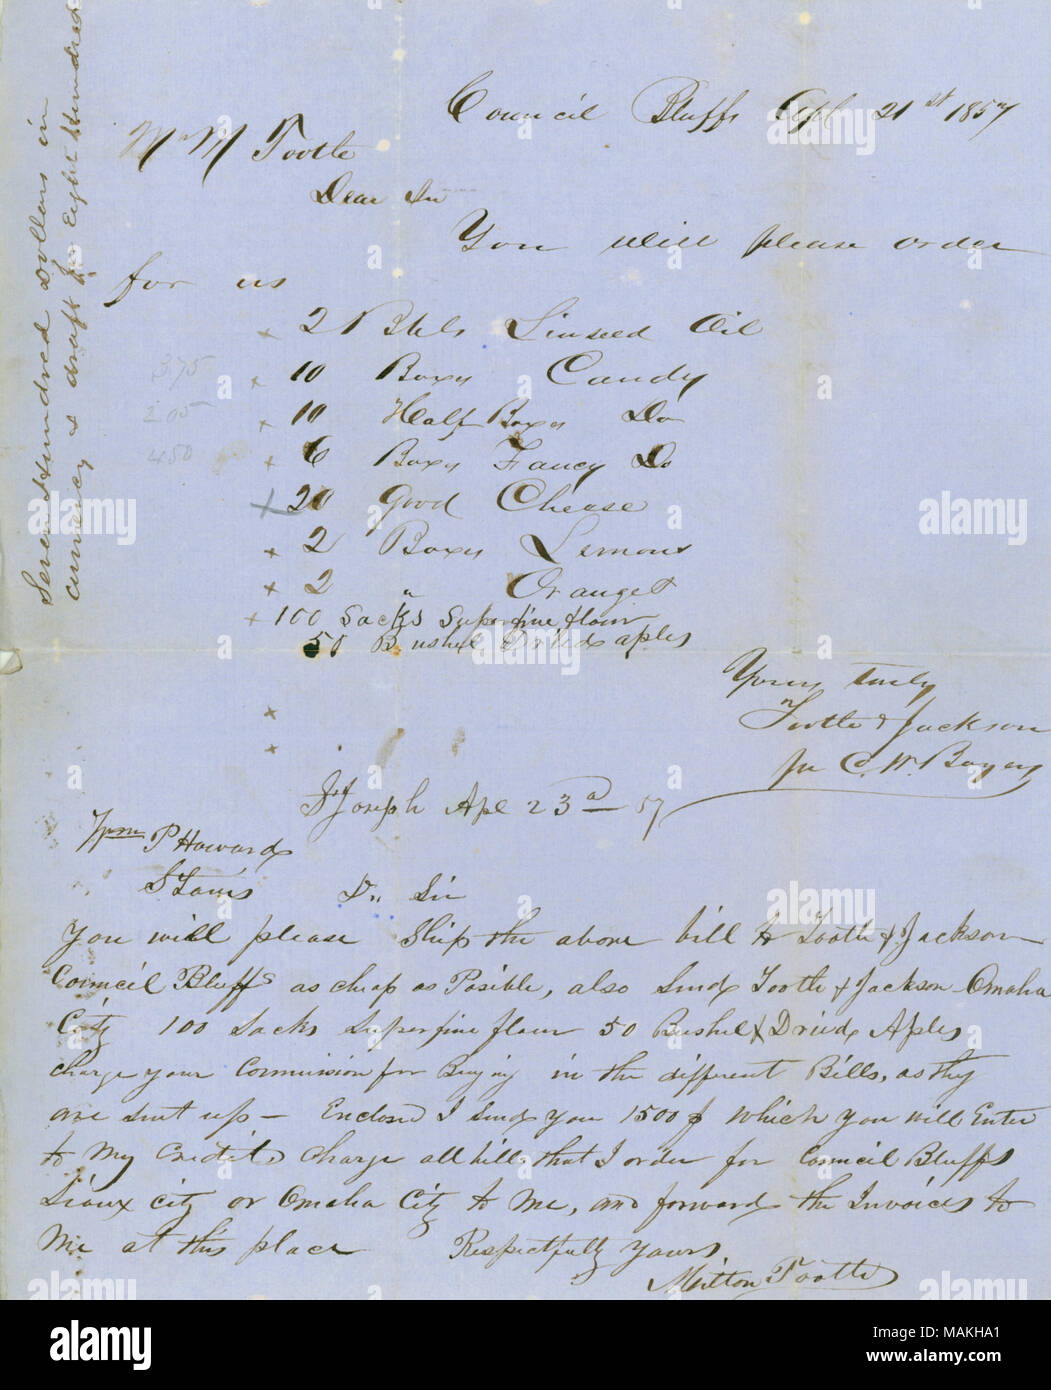 Council Bluffs Apl 21st 1857
Mr M Tootle
Dear Sir
You will please order
for us
x 2 Bbls Linseed Oil
375 x 10 Boxes Candy
205 x 10 Half Boxes Do
450 x 6 Boxes Fancy Do
x 20 Good Chease
x 2 Boxes Lemons
x 2 " Oranges
x 100 Sacks Superfine flour
50 Bushel Dried aples
Yours truly
Tootle & Jackson
Per C. W. Boyers
x
x
St Joseph Apl 23d 57
P Howard
St Louis Dr Sir
You will please Ship the above bill to Tootle & Jackson
Council Bluffs as cheap as Posible, also Send Tootle & Jackson Omaha
City 100 Sacks Superfine flour 50 Bushel Dried Aples
charge your Commission for Buying in the different Bills, as they
are sent up – Enclosed I Send you 1500$ Which you will Enter
to My Credit & Charge all bills that I order for Council Bluffs
Sioux city or Omaha City to Me, and forward the Invoices to
Me at this place Respectfully Yours
Milton Tootle
Seven Hundred dollars in
currency & draft for Eight Hundred
alamy
alamy
alamy
alamy
alamy
alamy
alamy
alamy
alamy
Image ID: MAKHA1
www.alamy.com